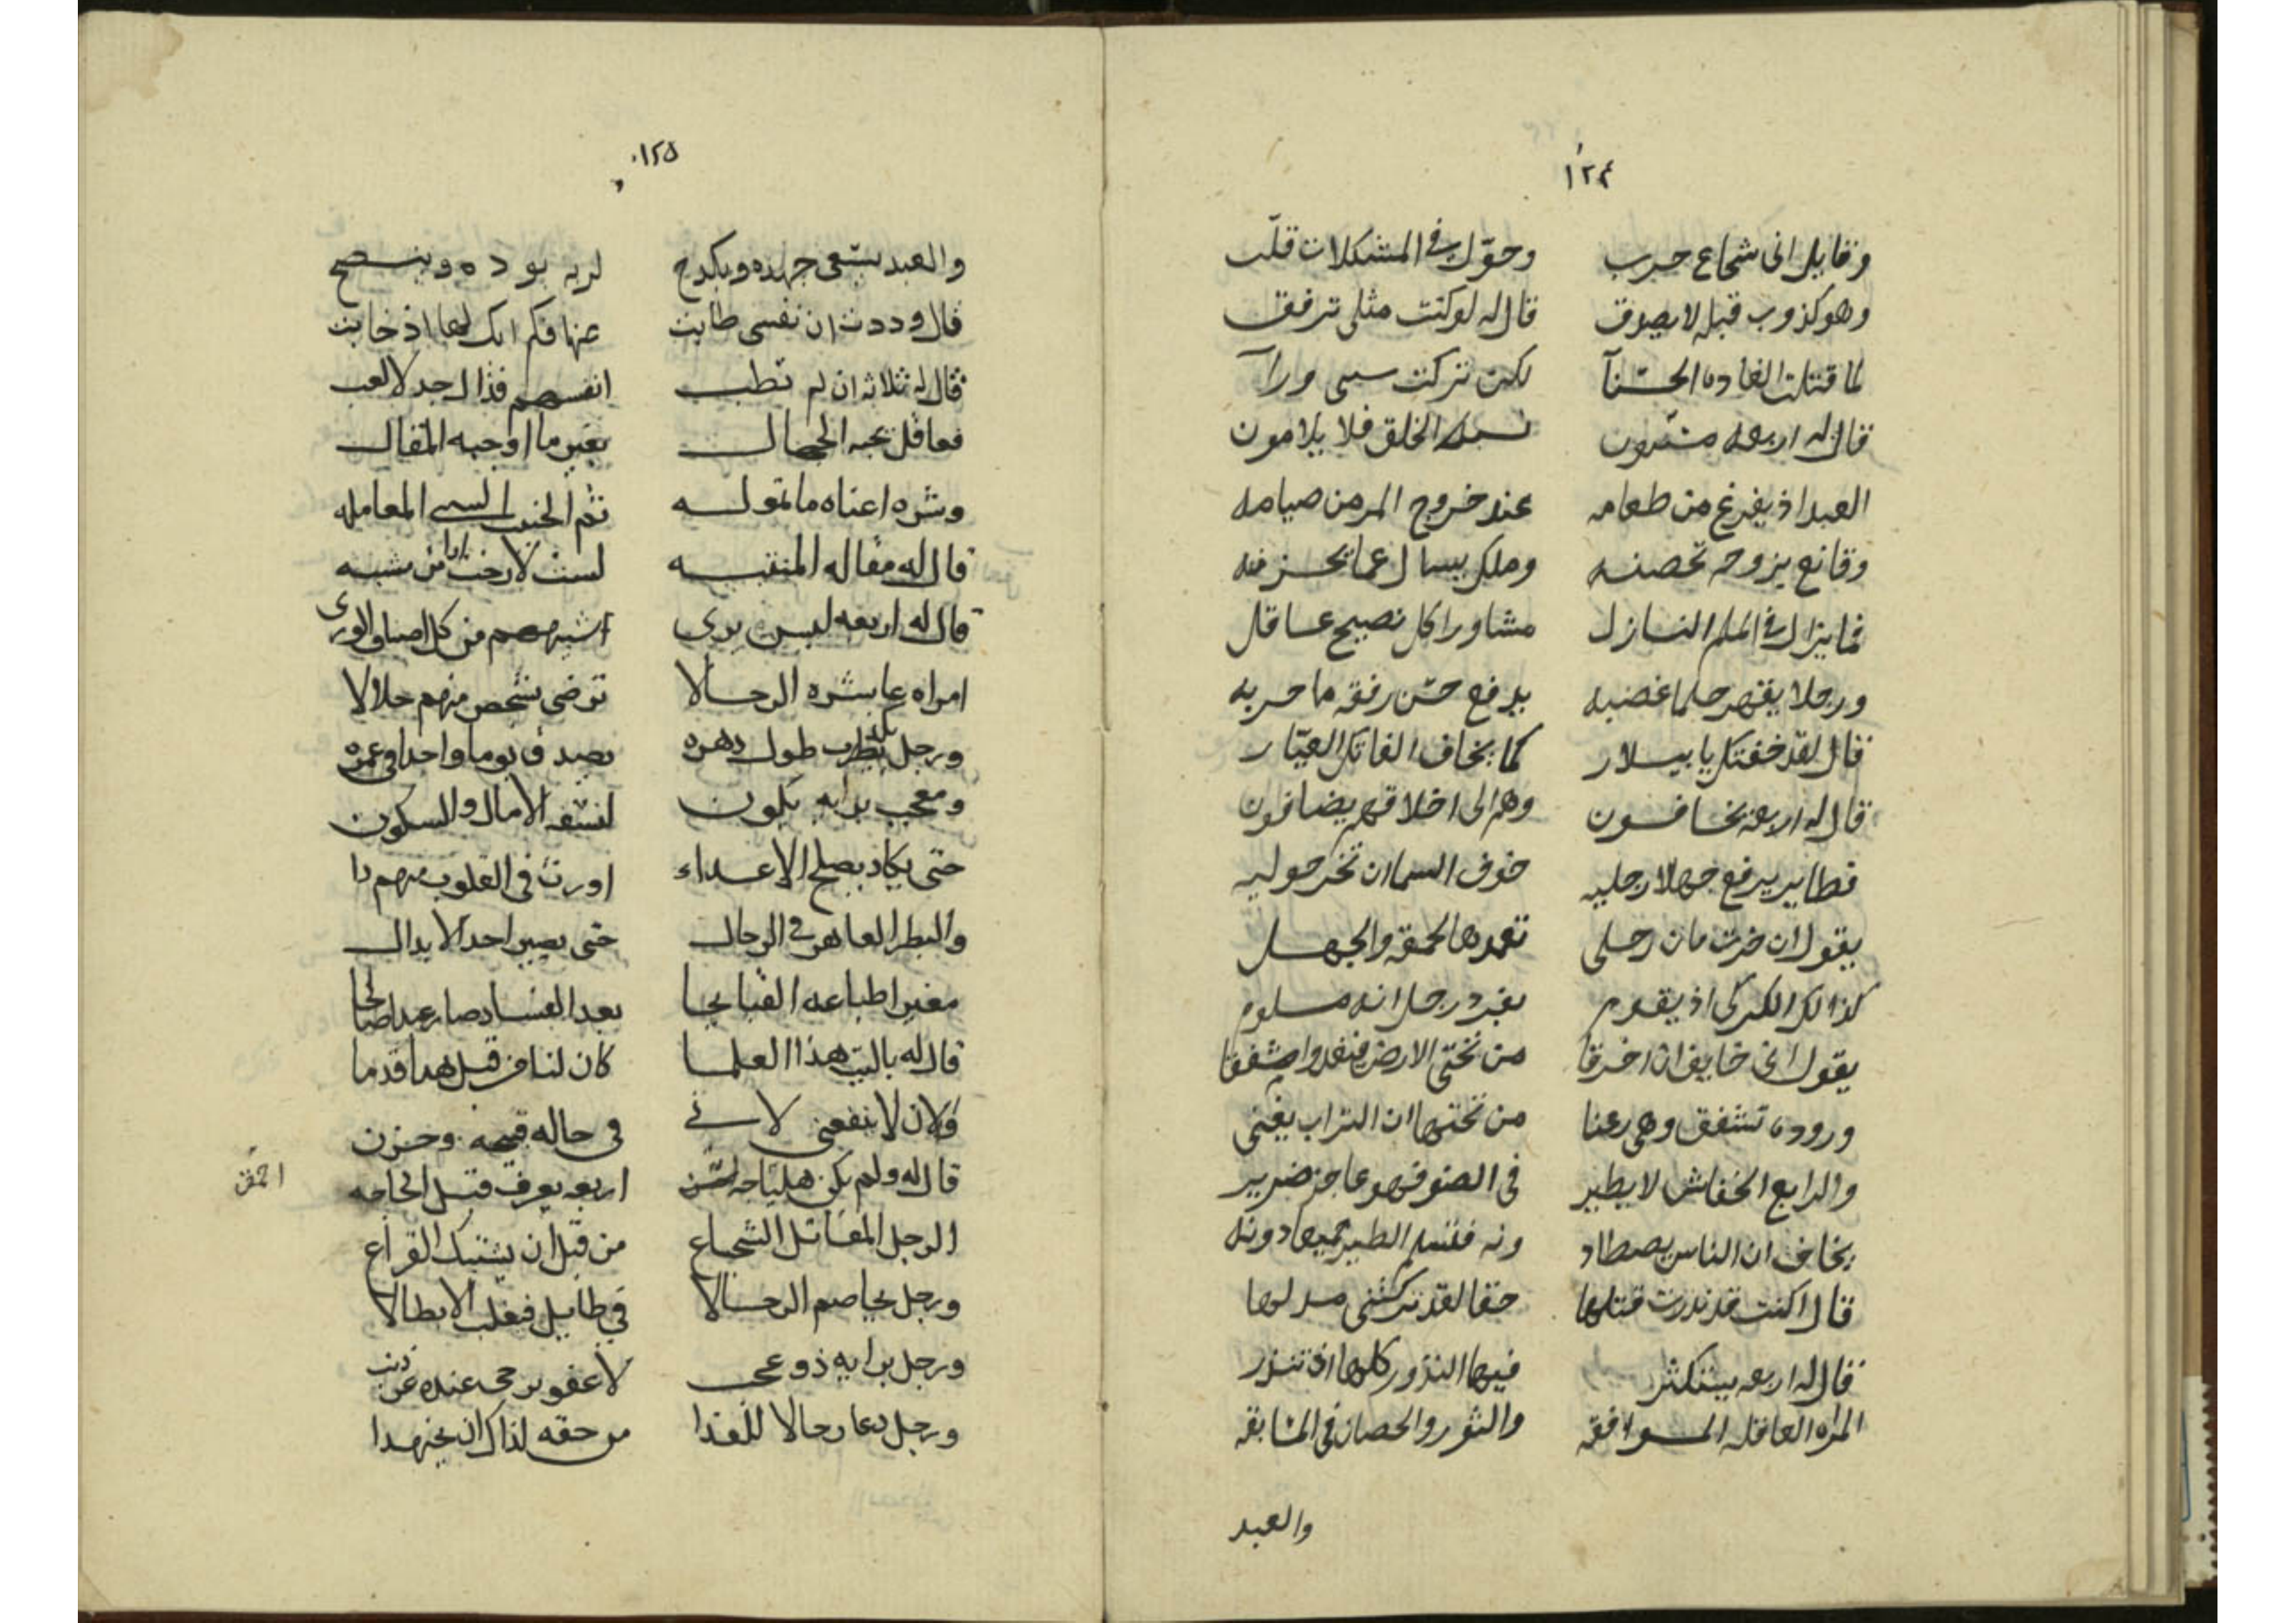 ١٢٤
وقايل انى شجاع حرب وحوّل في المشكلات قلّب
وهو كذوب قبله لا يصوق قال له لو كنت مثلى ترفق
لما قتلت الغاده الحسّنآ لكن تركت ورآ
قال له اربعه الخلق فلا يلامون
العبد اذ يفرغ من طعامه عند خروج المر من صيامه
وقانع بزوجه تحصنه وملك يسال عما يحزنه
فما يزال في الملم النازل مشاورا كل نصيح عاقل
ورجلا يقهر حلما غضبه يدفع حسّن رفقه ما حربه
قال لقد خفتك يا بيلار كما يخاف الفاتك العيّار
قال له اربعة يخافون وهم الى اخلاقهم يضافون
فطاير يرفع جهلا رجليه خوف السما ان تخر حوليه
يقول ان خرت مان رجلى تعمدها الحمقه والجهل
كذالك الكركى اذ يقوم بفرد رجل انه ملوم
يقول انى خايف ان اخرقا من تحتى الارض
ورودة تشفق وهى رعنا من تحتها ان التراب يغنى
والرابع الخفاش لا يطير في الضو فهو عاجز ضرير
يخاف ان الناس يصطادونه الطير جميعا دونه
قال اكنت قد نذرت قتلها حقا لقد تركتنى مدلها
قال له اربعه فيها النذور كلها اذ تنذر
المراه العاقله الموافقه والثور والحصان في المسابقه
والعبد
١٢٥
والعبد يسّعى جهده ويكدح لربه بوده وينصح
قال وددت ان نفسى طابت عنها فكم ابك لها اذ خابت
قال له ثلاثه ان لم تطب انفسهم فذال جد لا لعب
فعاقل يجبه الجهال بغير ما اوجبه المقال
وشره اعناه ما تموله ثم الخبيث السى المعامله
قال له مقاله المنتبه لست لارخت من مشبه
قال له اربعه ليس يرى اشبههم من كل اصناف الورى
امراه عاشره الرجالا ترضى بشخص منهم حلالا
ورجل يكذب طول دهره يصدق يوما واحدا في عمره
ومعجب برايه يكون الامال والسكون
حتى يكاد يصلح الاعداء اورث في القلوب منهم دا
والبطر العاهر في الرجال حتى يصير احد الابدال
مغير اطباعه القبايحا بعد الفساد صار عبدا صالحا
قال له ياليت هذا العلما كان لنا من قبل هذا قدما
والان لا ينفعنى لانى في حاله قبيحه وحزن
قال له ولم يكن اربعه يعرف قبل الحاجه
احمق
الرجل المقاتل الشجاع من قبل ان يشتبك القراع
ورجل يخاصم الرجالا في طايل فيغلب الابطالا
ورجل برايه ذو عى لا عفو يرجى عنده عن ذنب
ورجل دعا رجالا للغدا من حقه لذاك ان يجتهدا